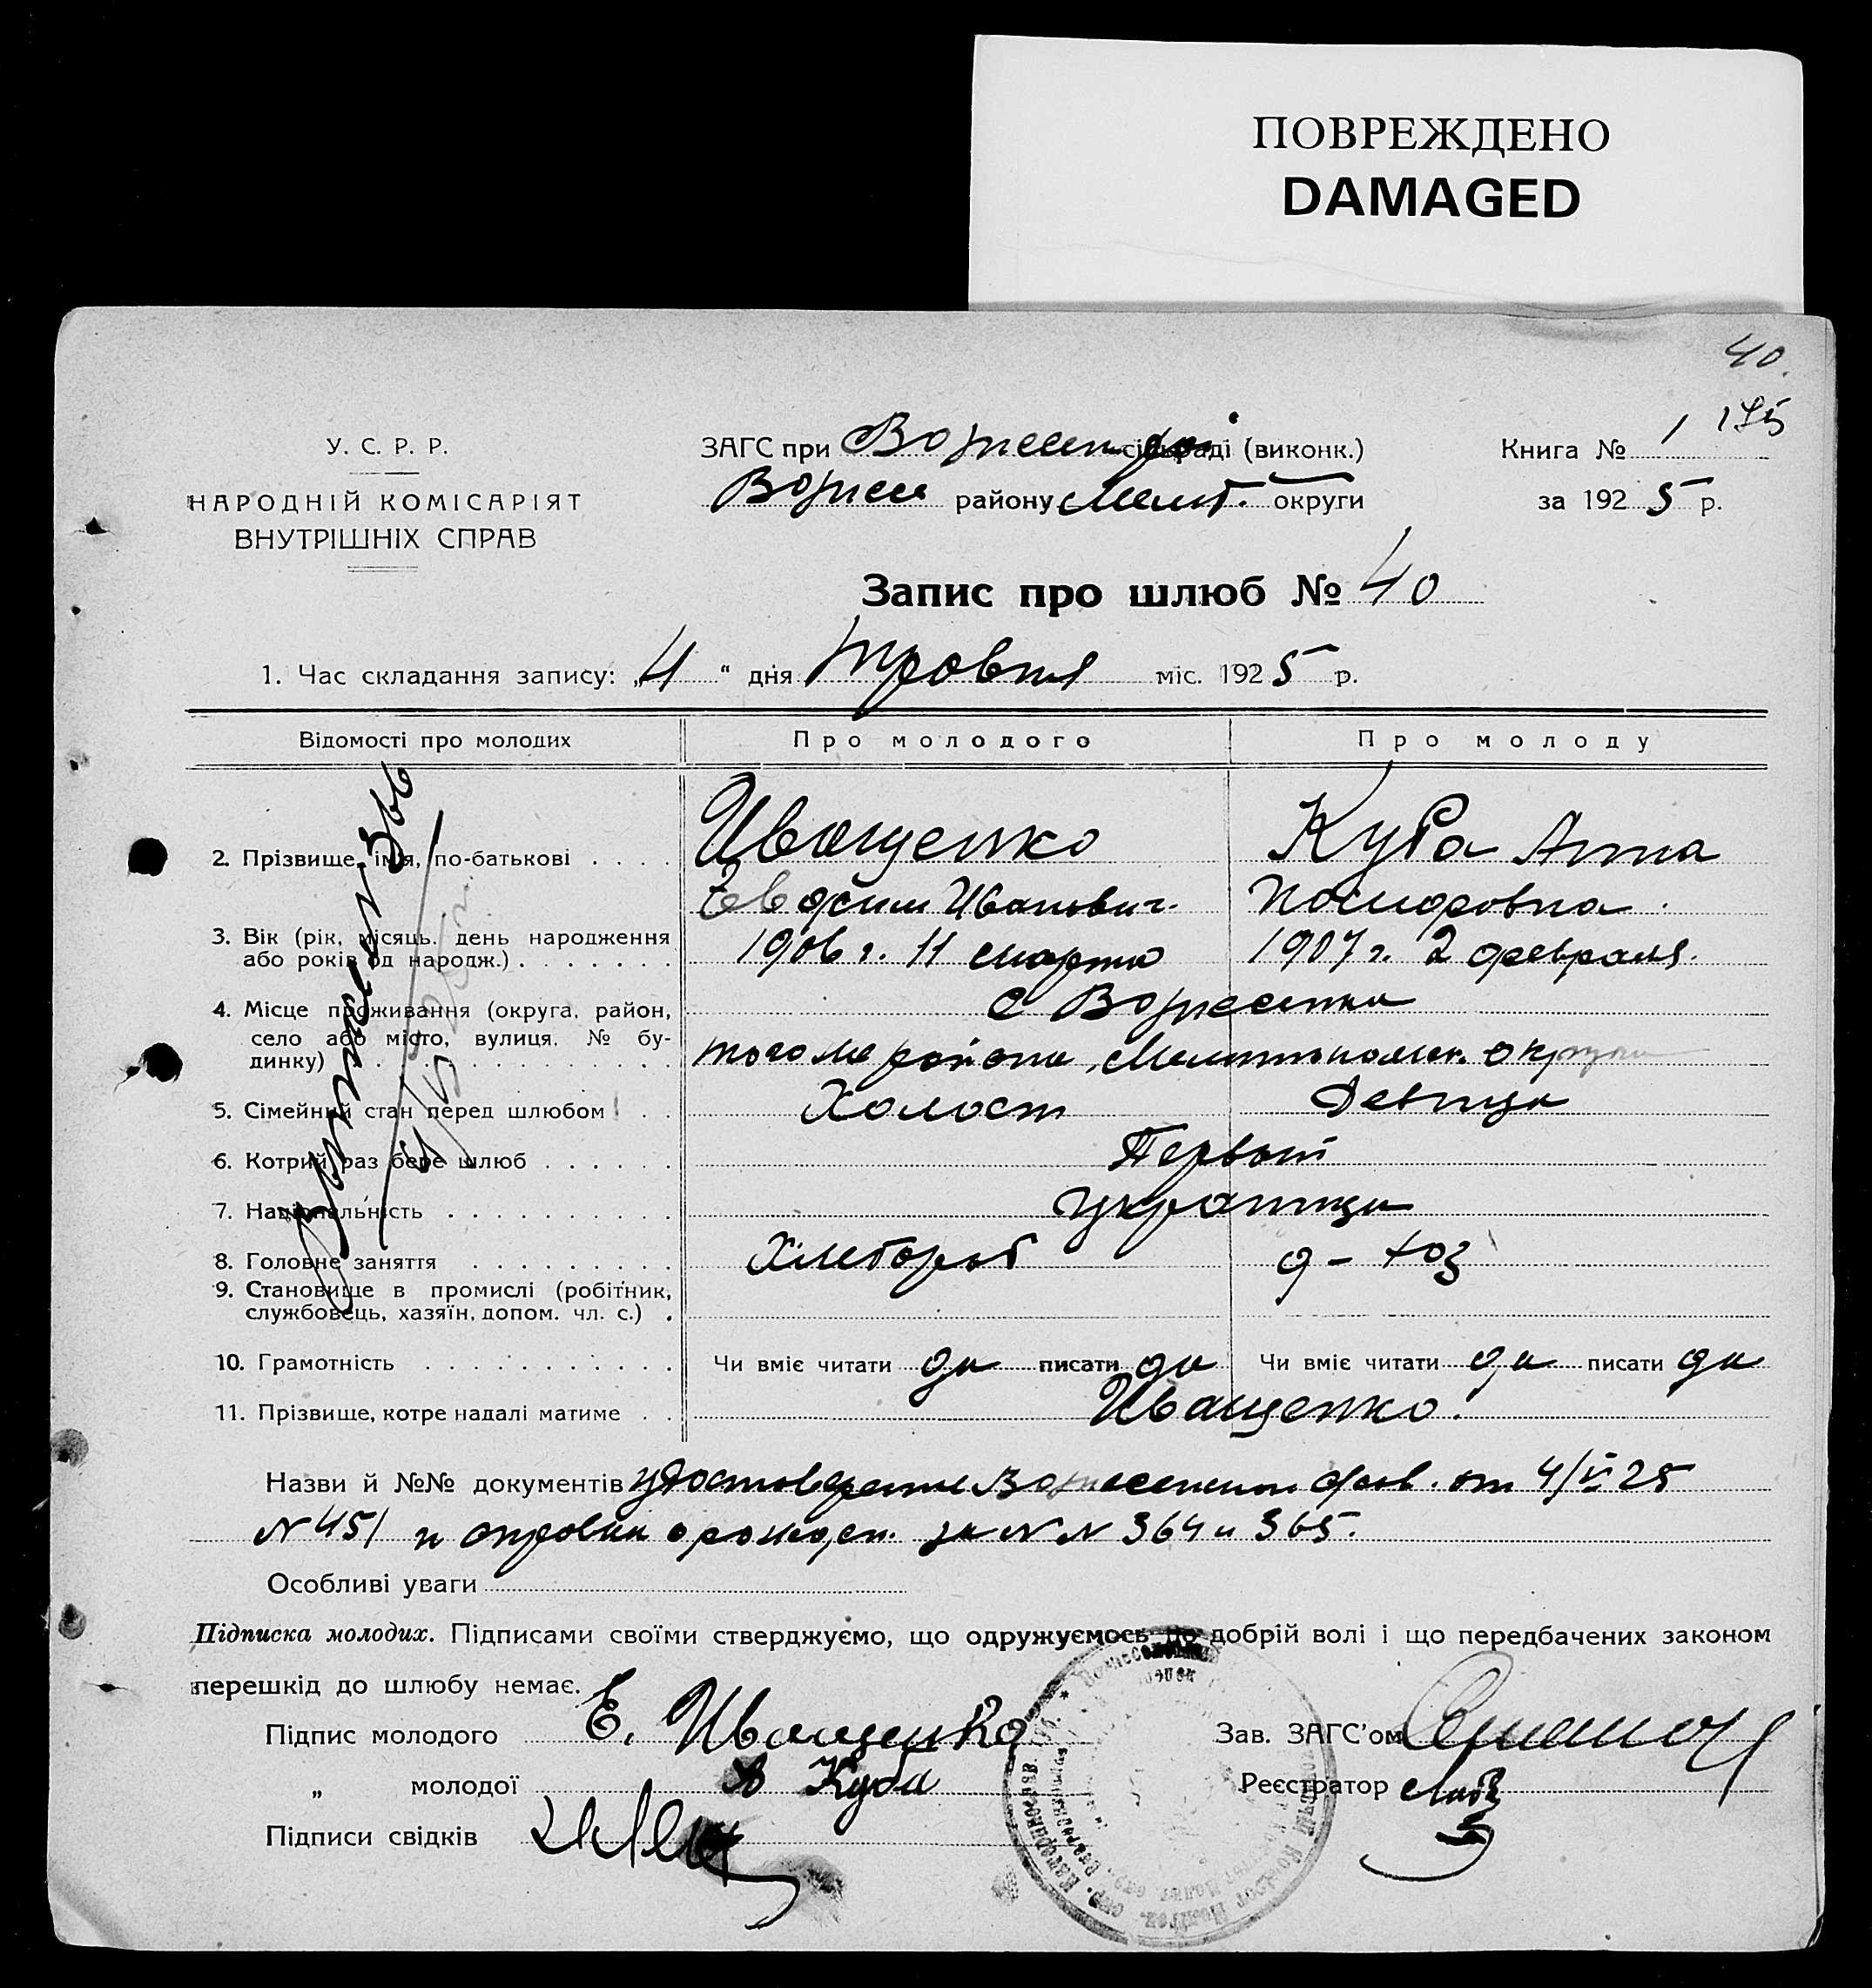 ПОВРЕЖДЕНО
DAMAGED
40.
175
У. С. Р. Р.
НАРОДНІЙ КОМІСАРІЯТ
ВНУТРІШНІХ СПРАВ
ЗАГС при Вознесен сільраді (виконк.)
Вознес району Мелит. округи
Книга № 1
за 1925 р.
Запис про шлюб № 40
1. Час складання запису: „4“ дня Травня міс. 1925 р.
Відомості про молодих
Про молодого
Про молоду
2. Прізвище, імя, по-батькові . . . .
Иващенко
Евдоким Иванович.
Куба Анна
3. Вік (рік, місяць, день народження
або років од народж.) . . . . . . .
1906 г. 11 марта
1907 г. 2 февраля.
4. Місце проживання (округа, район,
село або місто, вулиця, № бу-
динку) . . . . . . . . . . . . . .
с Вознесенка
того же района, Мелитопольск. округи
5. Сімейний стан перед шлюбом . .
Холост
Девица
6. Котрий раз бере шлюб . . . . . .
Первый
7. Національність . . . . . . . . . .
Украинцы
8. Головне заняття . . . . . . . . .
Хлебороб
д-хоз
9. Становище в промислі (робітник,
службовець, хазяїн, допом. чл. с.) .
10. Грамотність . . . . . . . . . . .
Чи вміє читати да писати да
Чи вміє читати да писати да
11. Прізвище, котре надалі матиме . .
Иващенко.
Назви й №№ документів удостоверение Вознесенской от 4/V 25
N 451 и справки о рожден. за N N 364 и 365.
Особливі уваги
Підписка молодих. Підписами своїми стверджуємо, що одружуємось по добрій волі і що передбачених законом
перешкід до шлюбу немає.
Підпис молодого Е. Иващенко
„ молодої А Куба
Підписи свідків
Зав. ЗАГС'ом
Реєстратор